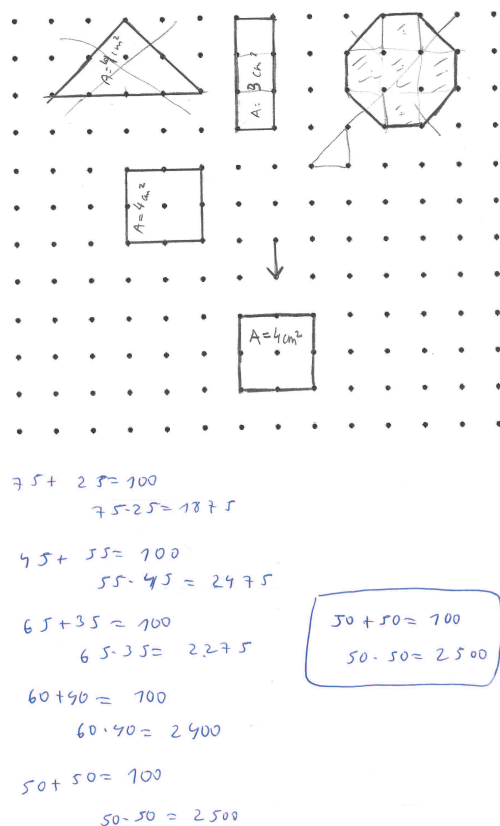 A=4cm²
A=3cm²
A=4cm²
A=4cm²
75+ 25=100
75·25=1875
45+ 55= 100
55·45 = 2475
65+35= 100
65·35= 2275
60+40= 100
60·40= 2400
50+50=100
50·50 = 2500
50+50= 100
50·50= 2500